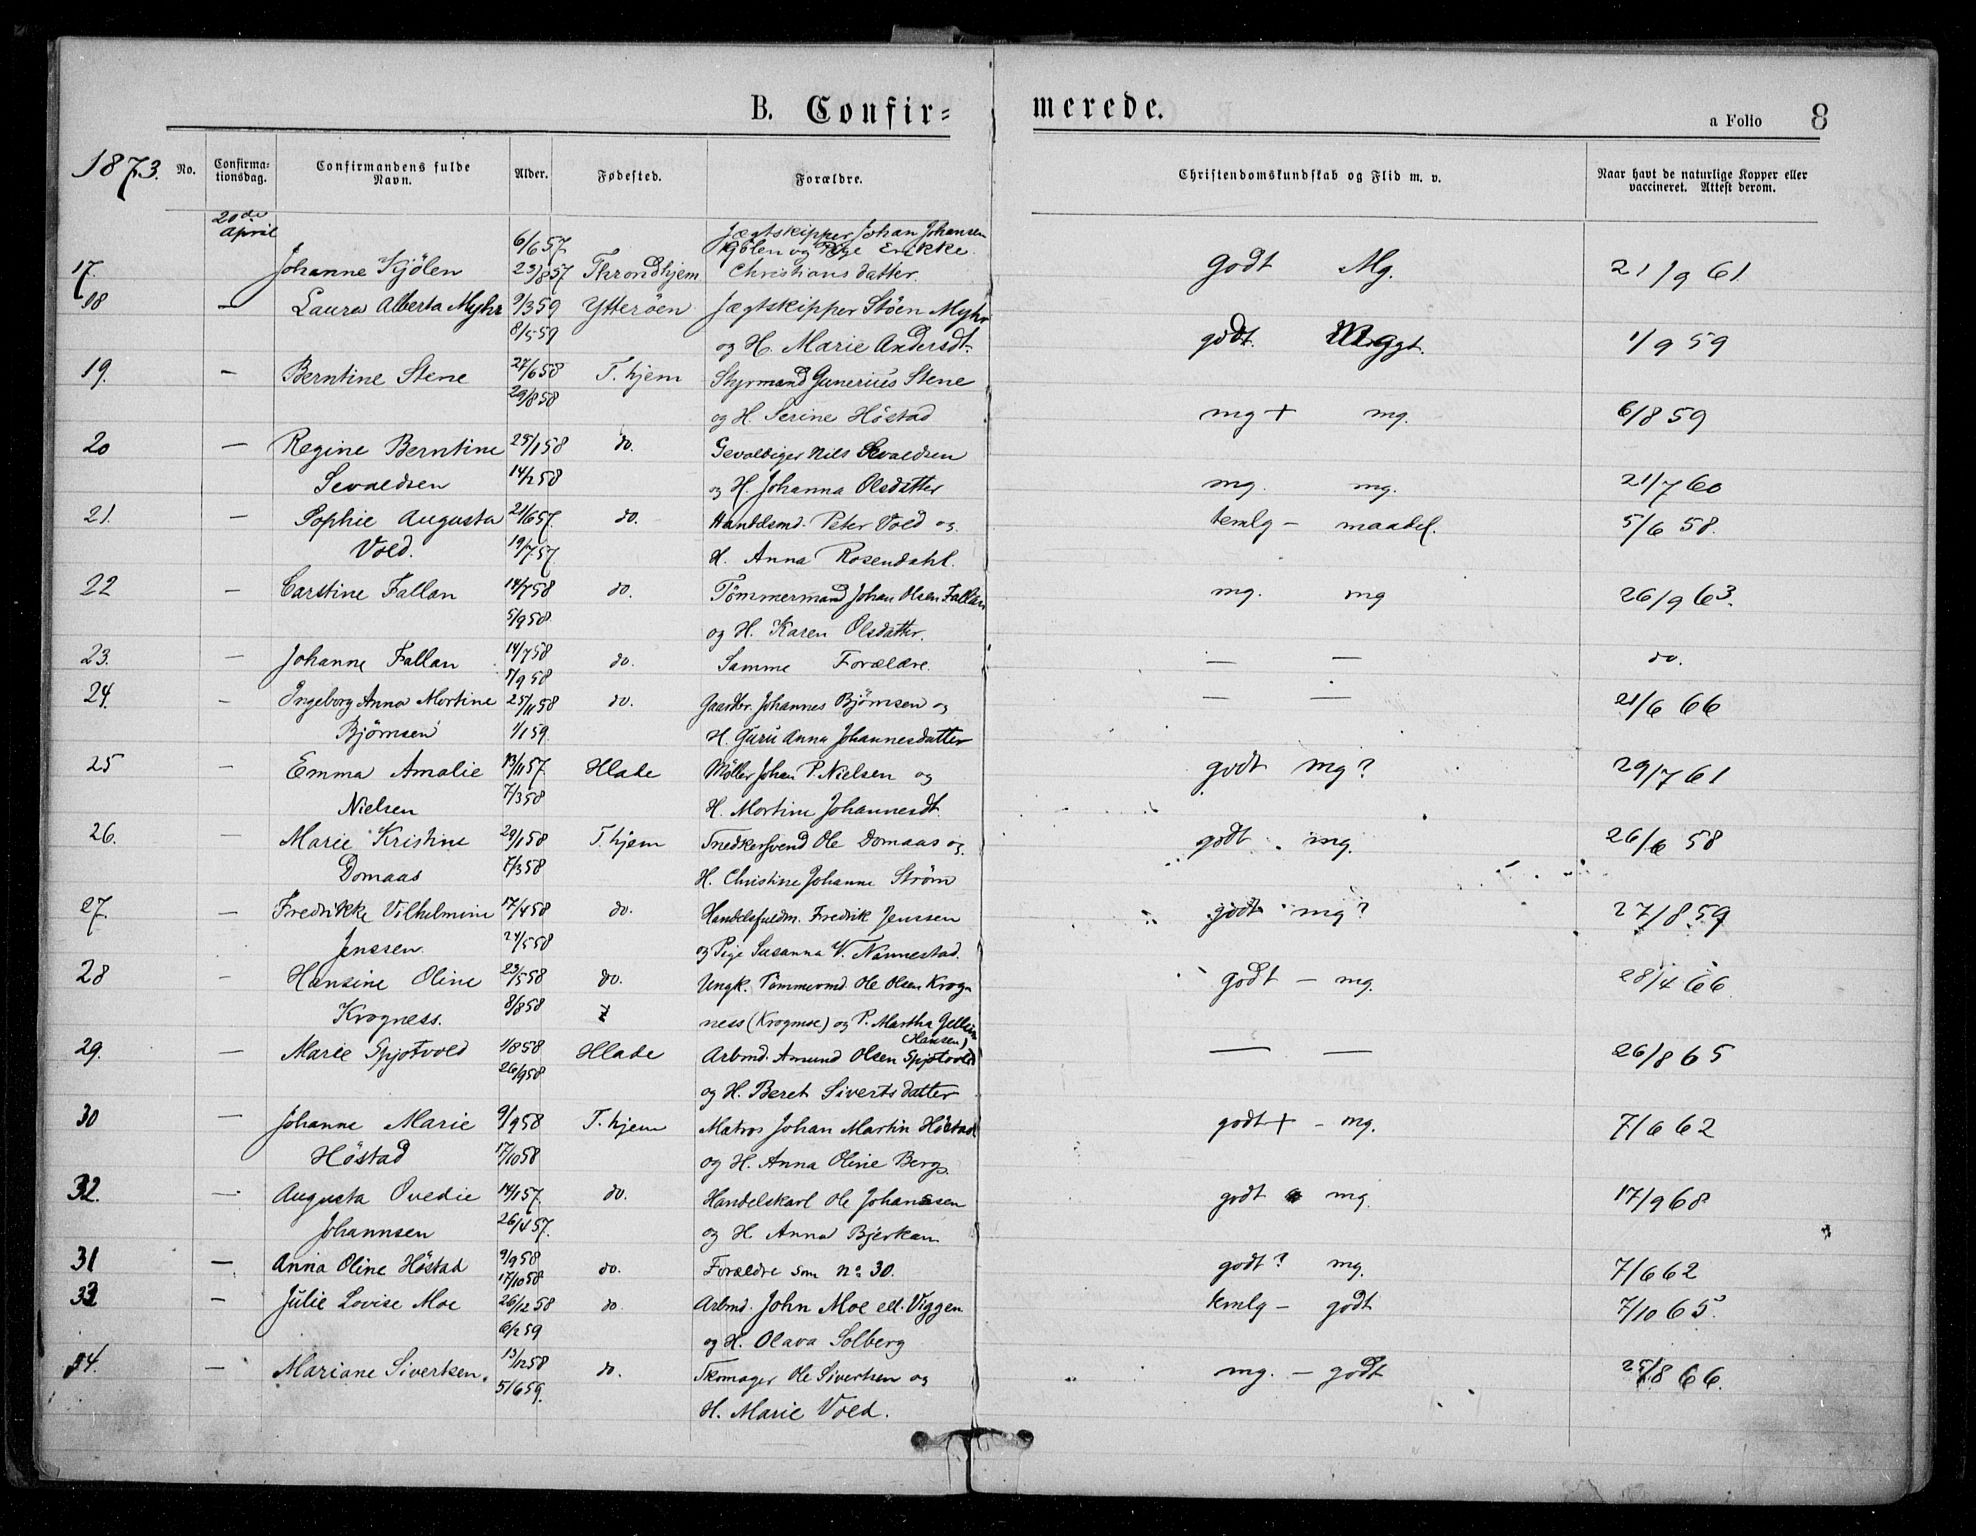 B. Confir= merede. a Folio 8
1873. No. Confirma-tionsdag. Confirmandens fulde Navn. Alder. Fødested. Forældre. Christendomskundskab og Flid m. v. Naar havt de naturlige Kopper eller vaccineret. Attest derom.
20de April 6/6 57 Jægtskipper Johan Johansen
Kjölen og Pige Erikke
17. Johanne Kjölen 23/8 57 Throndhjem Christiansdatter. godt Mg. 21/9 61
18 — Laura Alberta Myhr 9/3 59 Ytterøen Jægtskipper Støen Myhr
8/5 59 og H. Marie Andersdt. godt. Mggt. 1/9 59
19. — Berntine Stene 27/6 58 T. hjem Styrmand Gunerius Stene
29/8 58 og H. Serine Höstad mg + mg. 6/8 59
20 — Regine Berntine 25/1 58 do. Gevaldiger Nils Sevaldsen
Sevaldsen 14/2 58 og H. Johanna Olsdatter mg. mg. 21/7 60
21. — Sophie Augusta 21/6 57. do. Handelsmd. Peter Vold og temlg — maadel. 5/6 58.
Vold. 19/7 57 H. Anna Rosendahl.
22 — Carstine Fallan 14/7 58 do. Tömmermand Johan Olsen Fallan mg. mg 26/9 63.
5/9 58 og H. Karen Olsdatter.
23. — Johanne Fallan 14/7 58 do. Samme Forældre. — — do.
5/9 58
24. — Ingeborg Anna Mortine 25/11 58 do. Gaardbr. Johannes Bjørnsen og — — 21/6 66
Bjørnsen 1/1 59. H. Guru Anna Johannesdatter
25 — Emma Amalie 13/11 57. Hlade Møller Johan P. Nielsen og godt mg? 29/7 61
Nielsen 7/3 58 H. Mortine Johannesdt.
26. — Marie Kristine 29/1 58 T. hjem Snedkersvend Ole Domaas og godt. mg. 26/6 58
Domaas 7/3 58 H. Christine Johanne Ström
27. — Fredrikke Vilhelmine 17/4 58 do. Handelsfuldm. Fredrik Jenssen godt mg? 27/8 59
Jenssen. 24/5 58 og Pige Susanna V. Nannestad.
28 — Hansine Oline 23/5 58 do. Ungk. Tømmermd. Ole Olsen Krog- godt — mg. 28/4 66
Krogness. 8/8 58 ness (Krogmoe) og P. Martha Gellein
(Hansen)
29. — Marie Spjøtvold 1/8 58 Hlade Arbmd. Amund Olsen Spjøtvold — — 26/8 65
26/9 58 og H. Beret Sivertsdatter
30 — Johanne Marie 9/9 58 T. hjem Matros Johan Martin Höstad godt + — mg. 7/6 62
Höstad 17/10 58 og H. Anna Oline Berg.
32. — Augusta Ovedie 14/1 57. do. Handelskarl Ole Johanssen godt mg. 17/9 68
Johannsen 26/4 57. og H. Anna Bjerkan
31 — Anna Oline Höstad 9/9 58 do. Forældre som no 30. godt? mg. 7/6 62
17/10 58
33 — Julie Lovise Moe 26/12 58 do Arbmd. John Moe ell. Viggen temlg — godt 7/10 65.
6/2 59 og H. Olava Solberg
34. — Mariane Sivertsen. 13/12 58 do. Skomager Ole Sivertsen og mg. — godt 25/8 66.
5/6 59. H. Marie Vold.